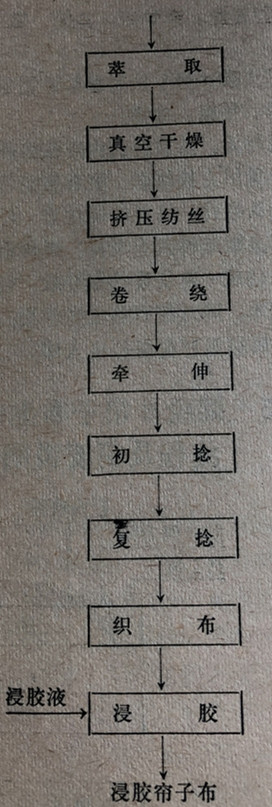 萃取
真空干燥
挤压纺丝
卷绕
牵伸
初捻
复捻
织布
浸胶液
浸胶
浸胶帘子布